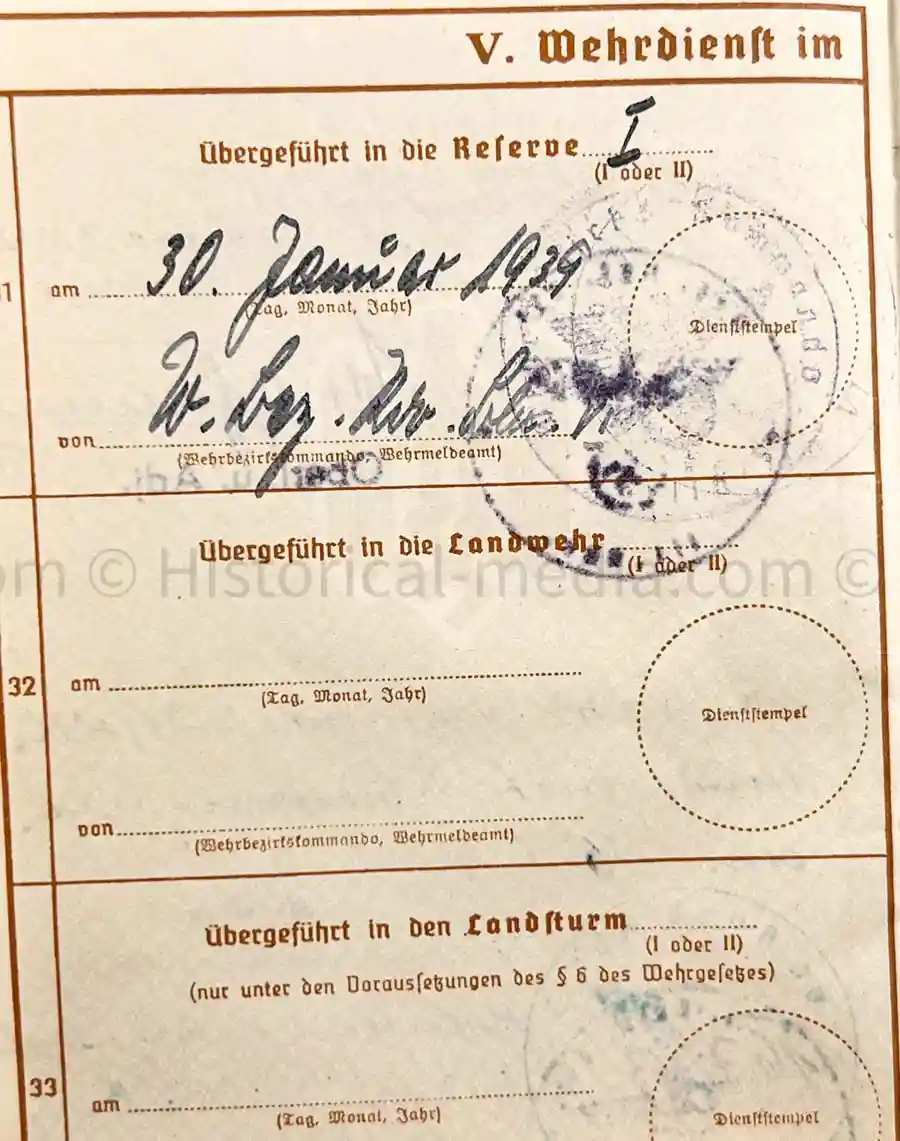 V. Wehrdienst im
Übergeführt in die Reserve I
(I oder II)
am 30. Januar 1939
(Tag, Monat, Jahr)
Dienststempel
von W. Bez. Kdo. Bln. VI
(Wehrbezirkskommando, Wehrmeldeamt)
Übergeführt in die Landwehr
(I oder II)
om © Historical-media.com ©
32
am
(Tag, Monat, Jahr)
Dienststempel
von
(Wehrbezirkskommando, Wehrmeldeamt)
Übergeführt in den Landsturm
(I oder II)
(nur unter den Voraussetzungen des § 6 des Wehrgesetzes)
33
am
(Tag, Monat, Jahr)
Dienststempel